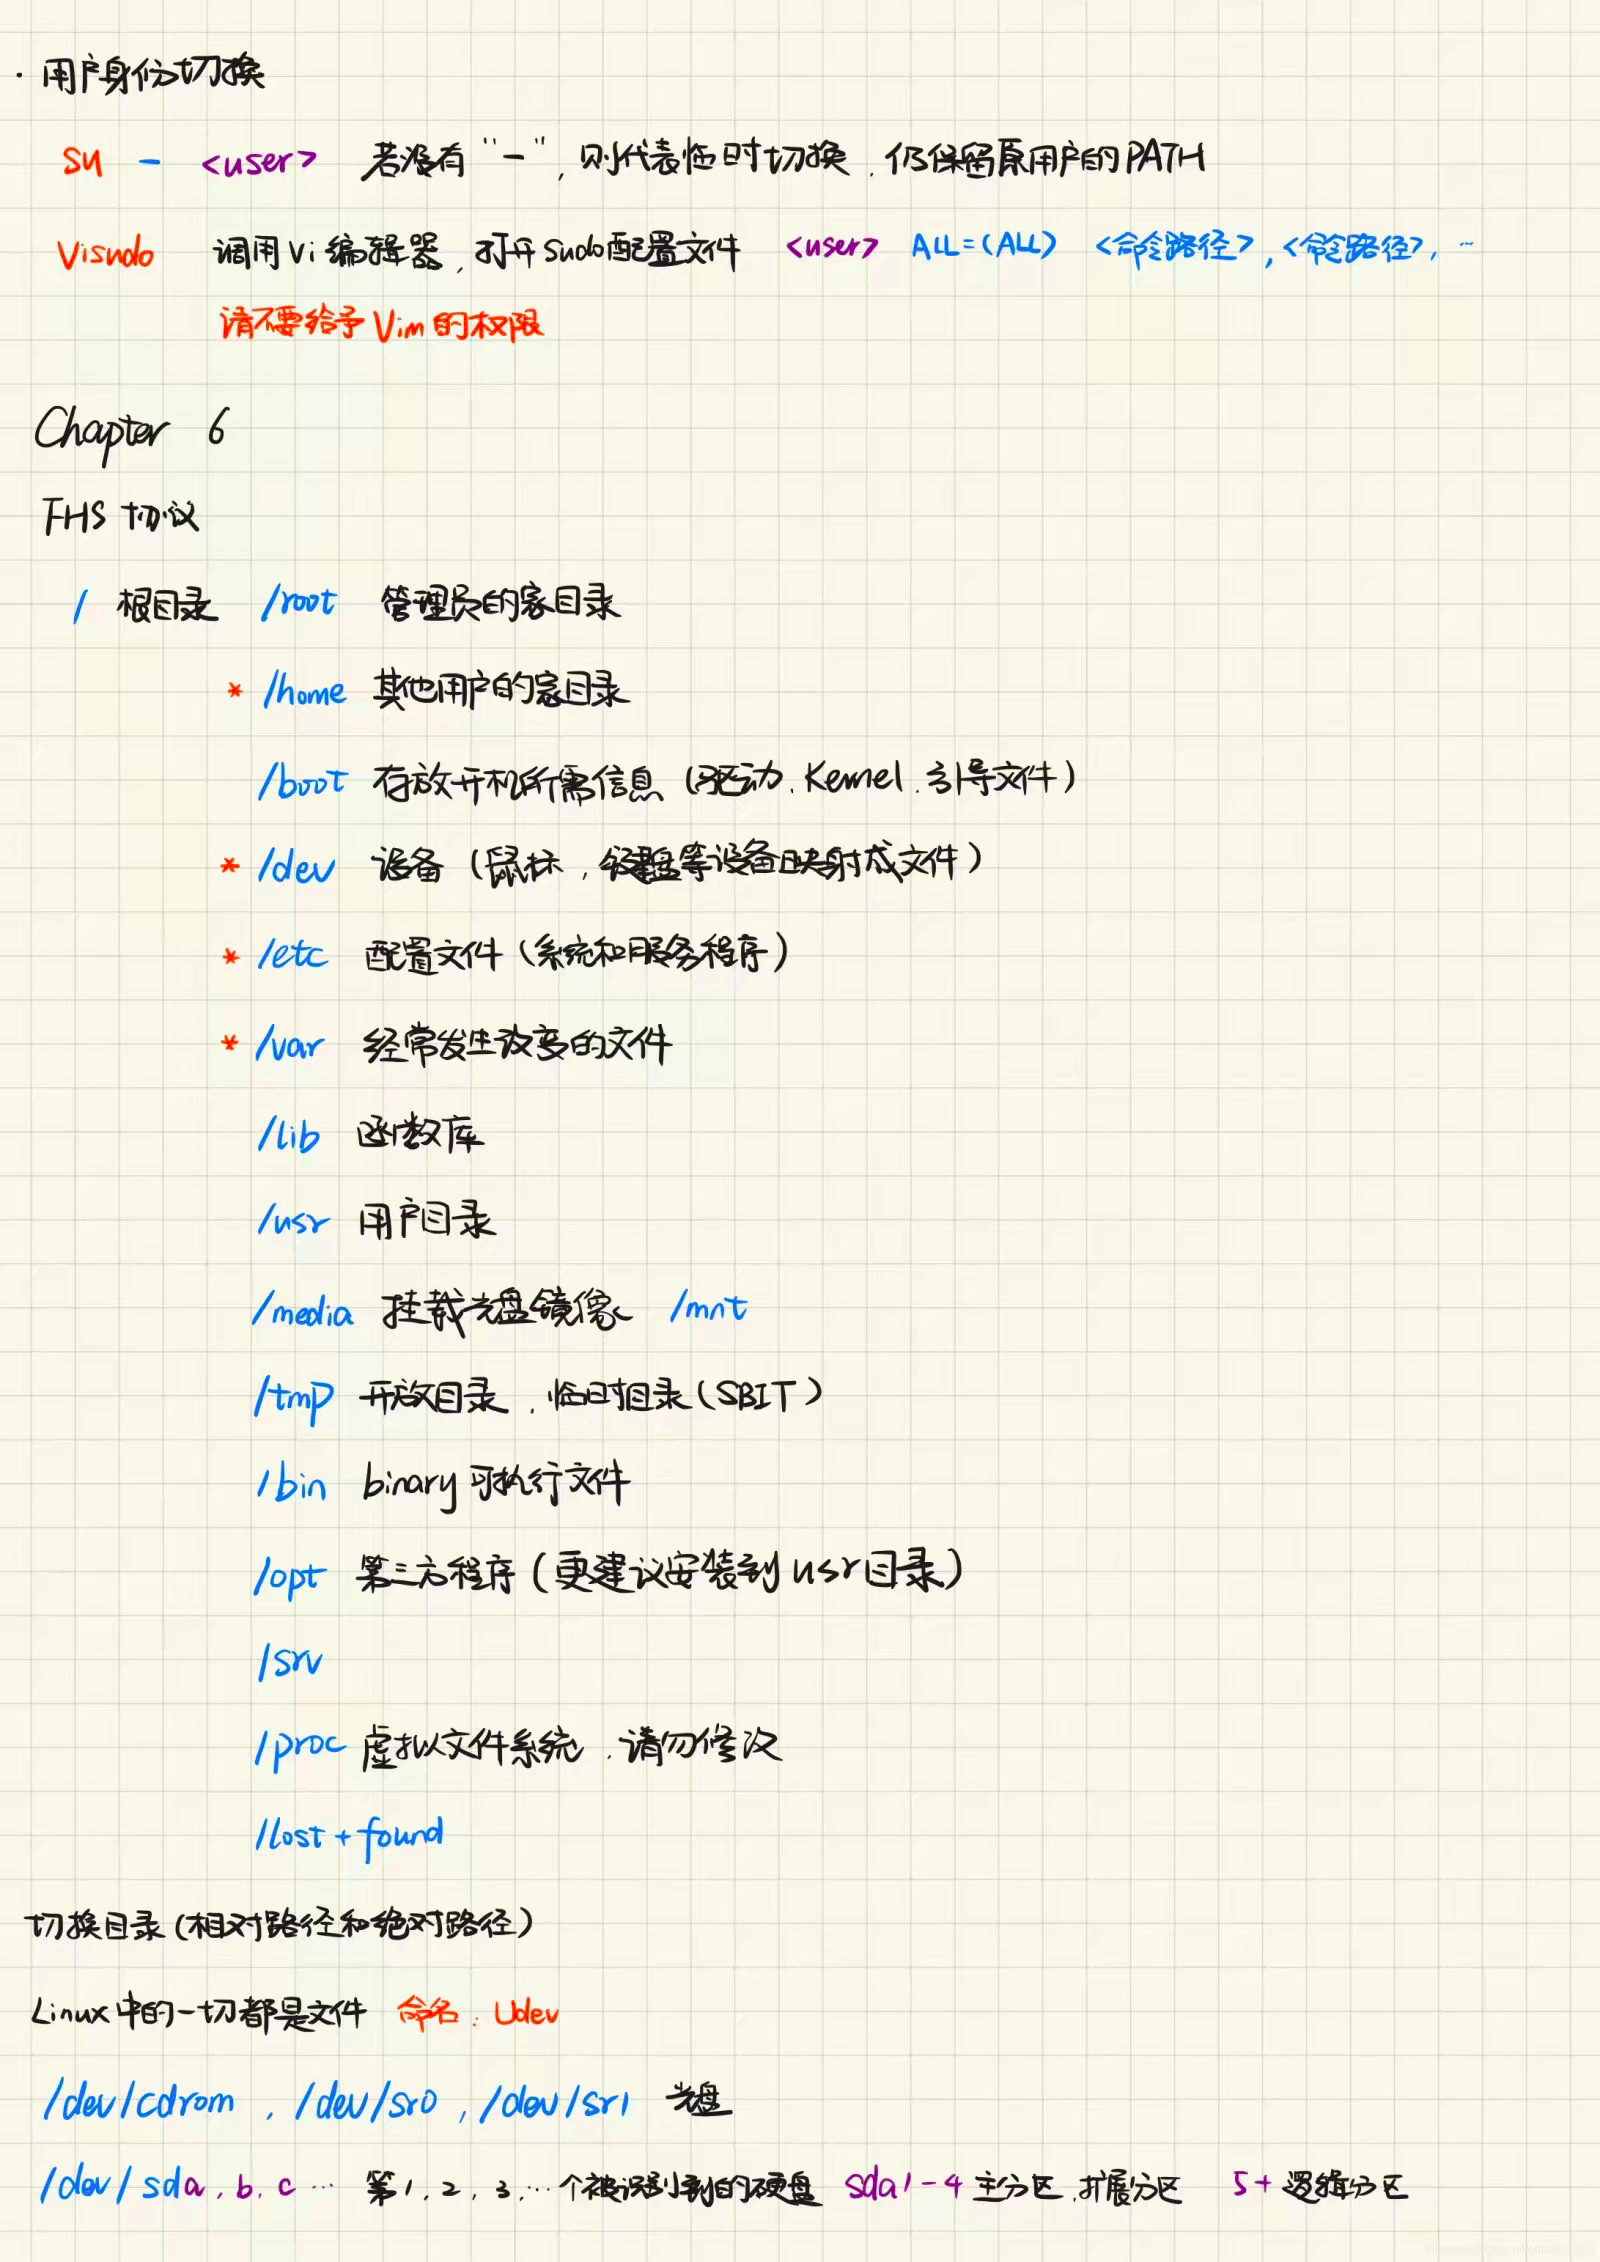 · 用户身份切换
su - <user> 若没有"-",则代表临时切换,仍保留原用户的PATH
Visudo 调用Vi编辑器,打开sudo配置文件 <user> ALL=(ALL) <命令路径>,<命令路径>,…
请不要给予Vim的权限
Chapter 6
FHS 协议
/ 根目录 /root 管理员的家目录
* /home 其他用户的家目录
/boot 存放开机所需信息(驱动、Kernel、引导文件)
* /dev 设备(鼠标,键盘等设备映射成文件)
* /etc 配置文件(系统和服务程序)
* /var 经常发生改变的文件
/lib 函数库
/usr 用户目录
/media 挂载光盘镜像 /mnt
/tmp 开放目录、临时目录(SBIT)
/bin binary可执行文件
/opt 第三方程序(更建议安装到usr目录)
/srv
/proc 虚拟文件系统、请勿修改
/lost+found
切换目录(相对路径和绝对路径)
Linux中的一切都是文件 命名:Udev
/dev/cdrom , /dev/sr0 , /dev/sr1 光盘
/dev/sda、b、c… 第1、2、3、…个被识别到的硬盘 sda1-4 主分区、扩展分区 5+ 逻辑分区